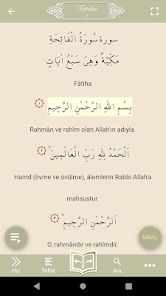 Fâtiha
سورة سُورَةُ الْفَاتِحَةِ
مَكِّيَّةٌ وَهِيَ سَبْعُ اٰيَاتٍ
Fâtiha
بِسْمِ اللّٰهِ الرَّحْمٰنِ الرَّح۪يمِ
Rahmân ve rahîm olan Allah'ın adıyla.
اَلْحَمْدُ لِلّٰهِ رَبِّ الْعَالَم۪ينَ
Hamd (övme ve övülme), âlemlerin Rabbi Allah'a
mahsustur.
اَلرَّحْمٰنِ الرَّح۪يمِ
O, rahmândır ve rahîmdir.
MEAL
Hız
Tefsir
Ara